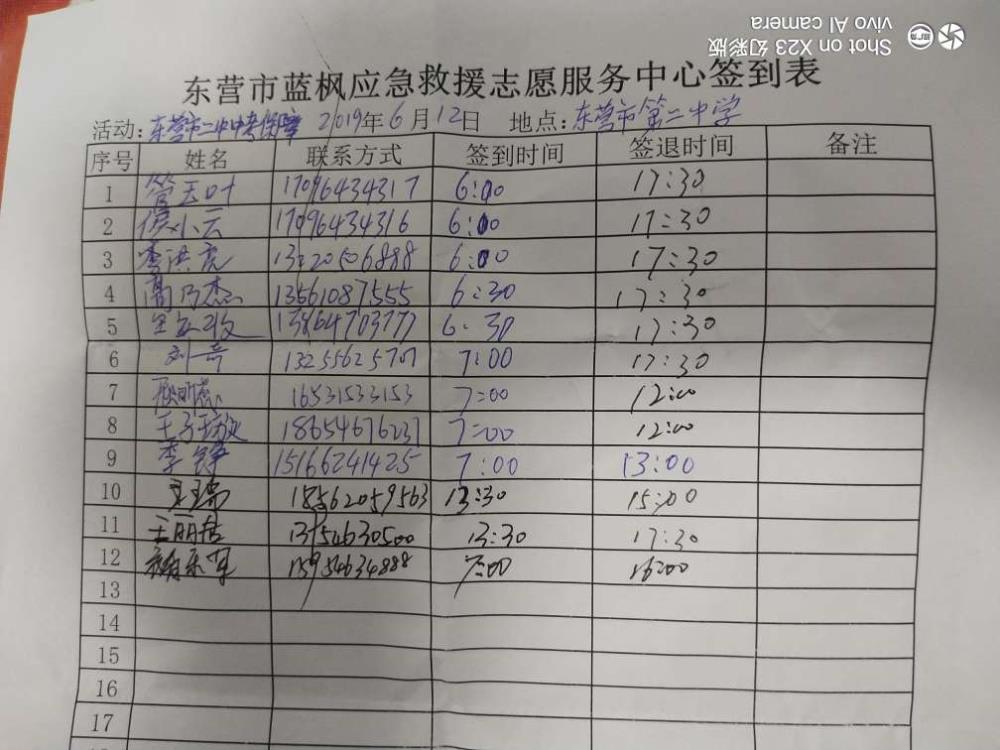 Shot on X23 幻彩版
vivo AI camera
东营市蓝枫应急救援志愿服务中心签到表
活动：东营市二中中考保障 2019年6月12日 地点：东营市第二中学
序号 姓名 联系方式 签到时间 签退时间 备注
1 管玉叶 17096434317 6:00 17:30
2 侯小云 17096434316 6:00 17:30
3 李洪亮 13220506888 6:00 17:30
4 高乃杰 13561087555 6:30 17:30
5 13864703777 6:30 17:30
6 刘奇 13255625707 7:00 17:30
7 16531533153 7:00 12:00
8 18654676237 7:00 12:00
9 李铮 15166241425 7:00 13:00
10 王瑞 18562059563 13:30 15:00
11 王丽君 13754630500 13:30 17:30
12 15954634888 7:00 16:00
13
14
15
16
17